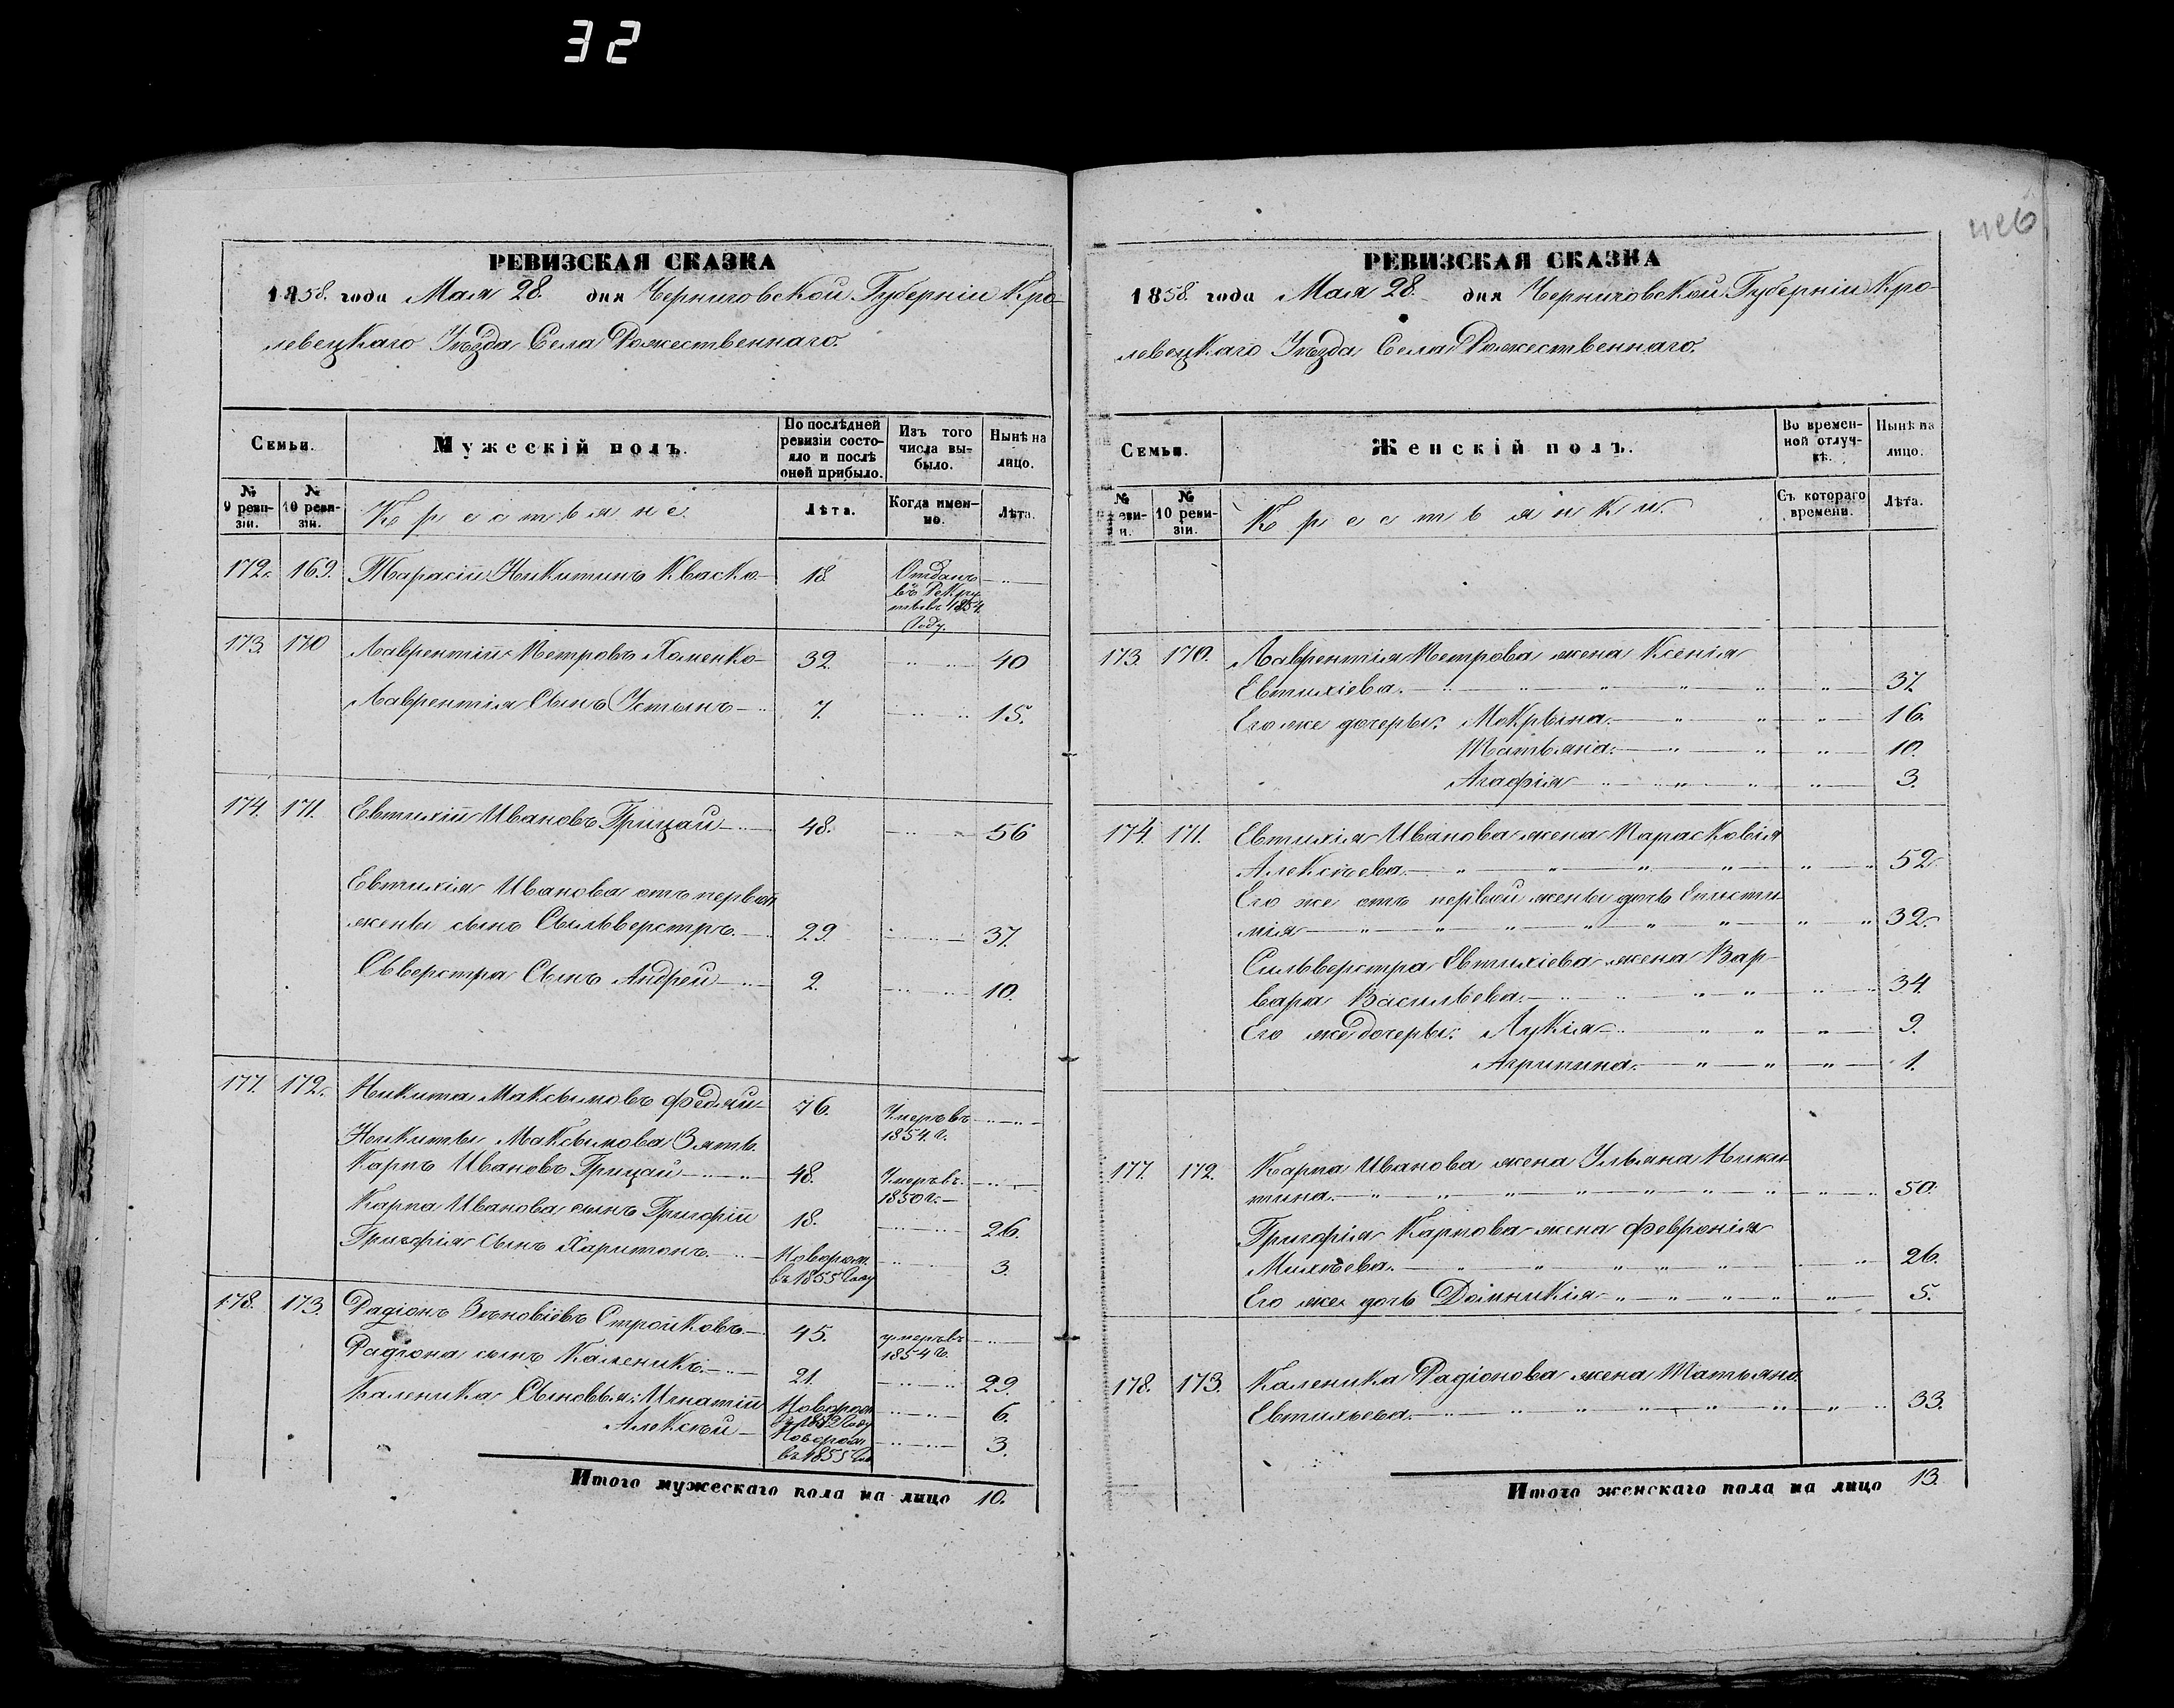 32
РЕВИЗСКАЯ СКАЗКА
1858. года Мая 28. дня Черниговской Губерніи Кро-
левецкаго Уѣзда Села Рожественнаго.
Семьи.
Мужескій полъ.
По послѣдней ревизіи состо-
яло и послѣ оной прибыло.
Изъ того числа вы-
было.
Нынѣ на лицо.
№ 9 реви-
зіи.
№ 10 реви-
зіи.
Крестьяне.
Лѣта.
Когда имен-
но.
Лѣта.
172. 169. Тарасій Никитинъ Кваско 18 Отданъ
въ Рекру-
ты въ 1854
Году.
173. 170 Лаврентій Петровъ Хоменко 32. 40
Лаврентія Сынъ Устынъ 7. 15.
174. 171. Евтихій Ивановъ Грицай 48. 56
Евтихія Иванова отъ первой
жены сынъ Сыльверстръ 29. 37.
Сыверстра Сынъ Андрей 2. 10.
177. 172. Никита Максымовъ Федяй 76. Умеръ въ
1854. г.
Никиты Максымова Зять
Карпъ Ивановъ Грицай 48. Умеръ въ
1850 г.
Карпа Иванова сынъ Григорій 18. 26.
Григорія Сынъ Харитонъ Новорож.
въ 1855 Году 3.
178. 173. Радіонъ Зѣновіевъ Стройковъ 45. умеръ въ
1854 г.
Радіона сынъ Каленикъ 21. 29.
Каленика Сыновья: Игнатій Новорож
въ 1852 Году 6.
Алексѣй Новорож
въ 1855 Го 3.
Итого мужескаго пола на лицо 10.
РЕВИЗСКАЯ СКАЗКА
1858. года Мая 28. дня Черниговской Губерніи Кро-
левецкаго Уѣзда Села Рожественнаго.
Семьи.
Женскій полъ.
Во времен-
ной отлуч-
кѣ.
Нынѣ на лицо.
№ реви-
и.
№ 10 реви-
зіи.
Крестьянки.
Съ котораго времени.
Лѣта.
173. 170. Лаврентія Петрова жена Ксенія
Евтихіева. 37.
Его же дочеры: Мокрына. 16.
Татьяна. 10.
Агафія 3.
174. 171. Евтихія Иванова жена Парасковія
Алексѣева. 52.
Его же отъ первой жены дочь Еписти-
мія 32.
Сильверстра Евтихіева жена Вар-
вара Васильева. 34.
Его же дочеры: Лукія 9.
Агрипина. 1.
177. 172. Карпа Иванова жена Ульяна Ники-
тина. 50.
Григорія Карпова жена Февронія
Михѣева. 26.
Его же дочь Домникія 5.
178. 173. Каленика Радіонова жена Татьяна
Евтихѣева. 33.
Итого женскаго пола на лицо 13.